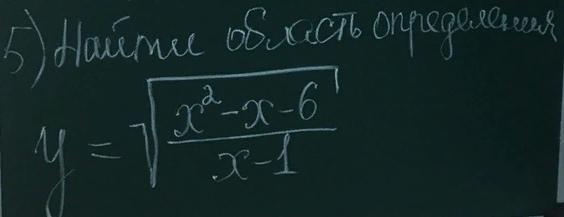 5) Найти область определения
y = √((x² - x - 6)/(x - 1))